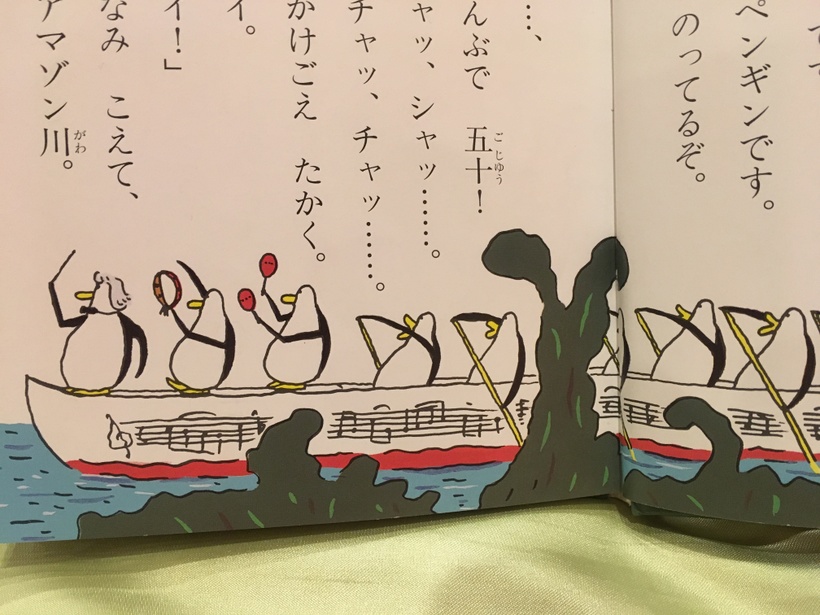 ペンギンです。
のってるぞ。
…、
んぶで　五十！
ごじゅう
ャッ、シャッ……。
チャッ、チャッ……。
かけごえ　たかく。
イ。
イ！」
なみ　こえて、
アマゾン川。
がわ